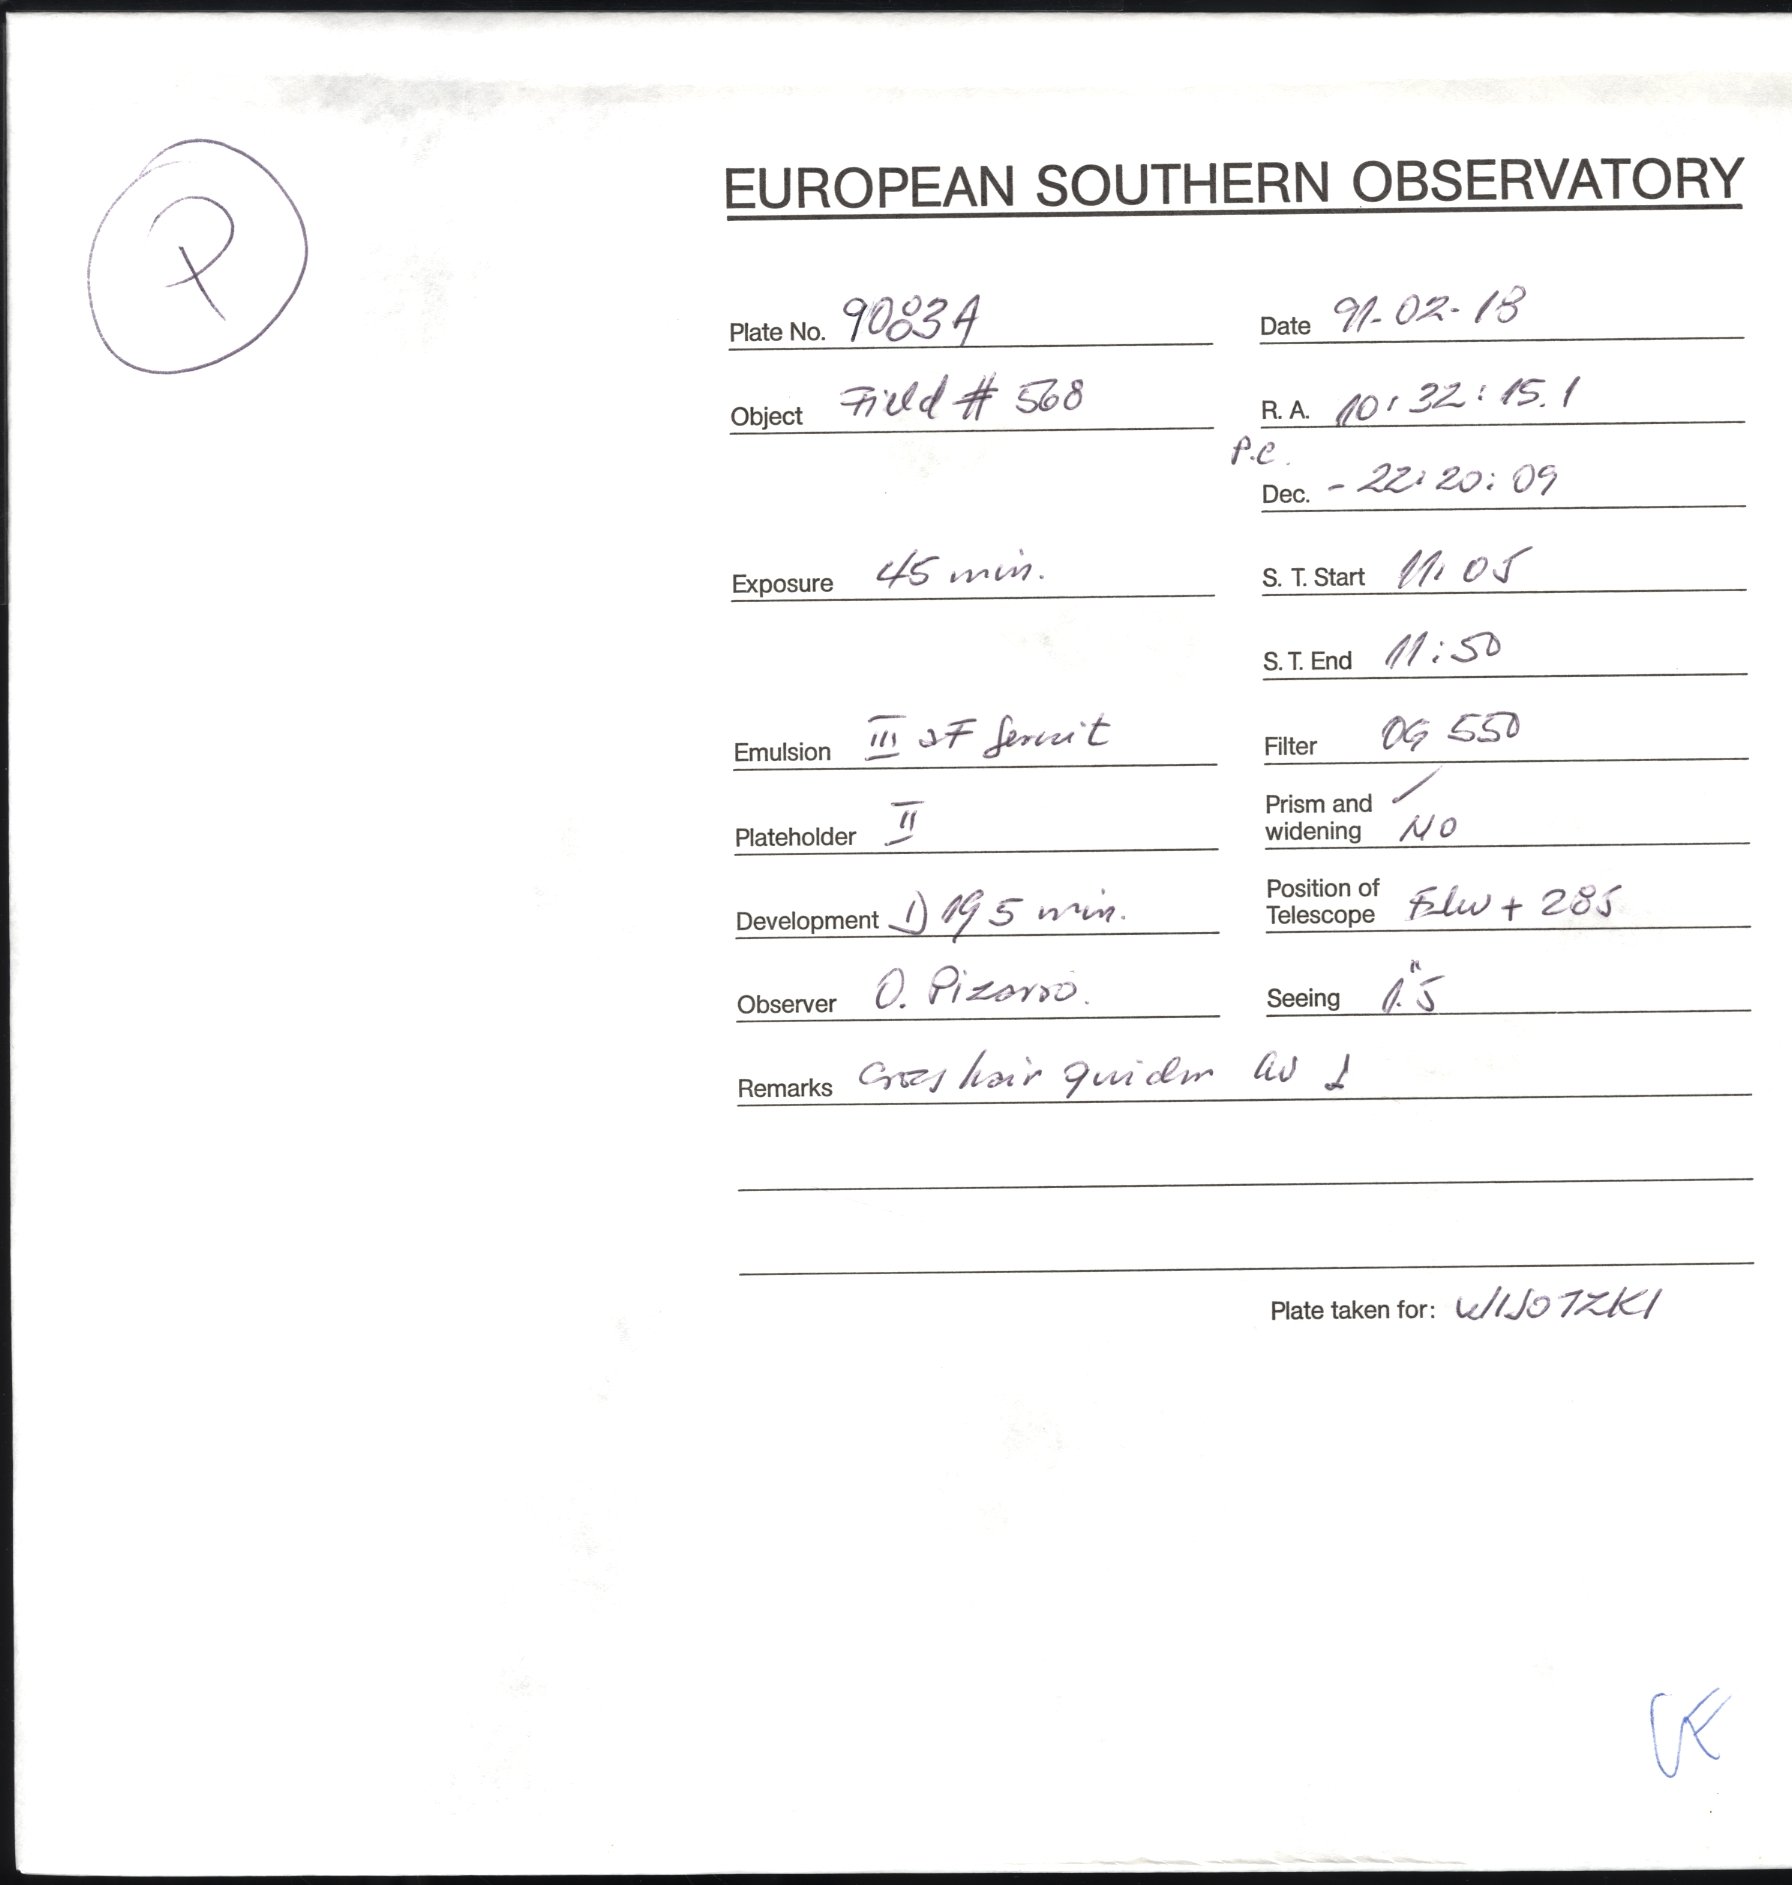 P
EUROPEAN SOUTHERN OBSERVATORY
Plate No. 9083A Date 91-02-18
Object Field # 568 R. A. 10:32:15.1
P.C.
Dec. - 22:20:09
Exposure 45 min. S. T. Start 11:05
S. T. End 11:50
Emulsion III aF Filter OG 550
Plateholder II Prism and widening / NO
Development D 19 5 min. Position of Telescope + 285
Observer O. Pizarro. Seeing 1."5
Remarks Cross hair
Plate taken for: WISOTZKI